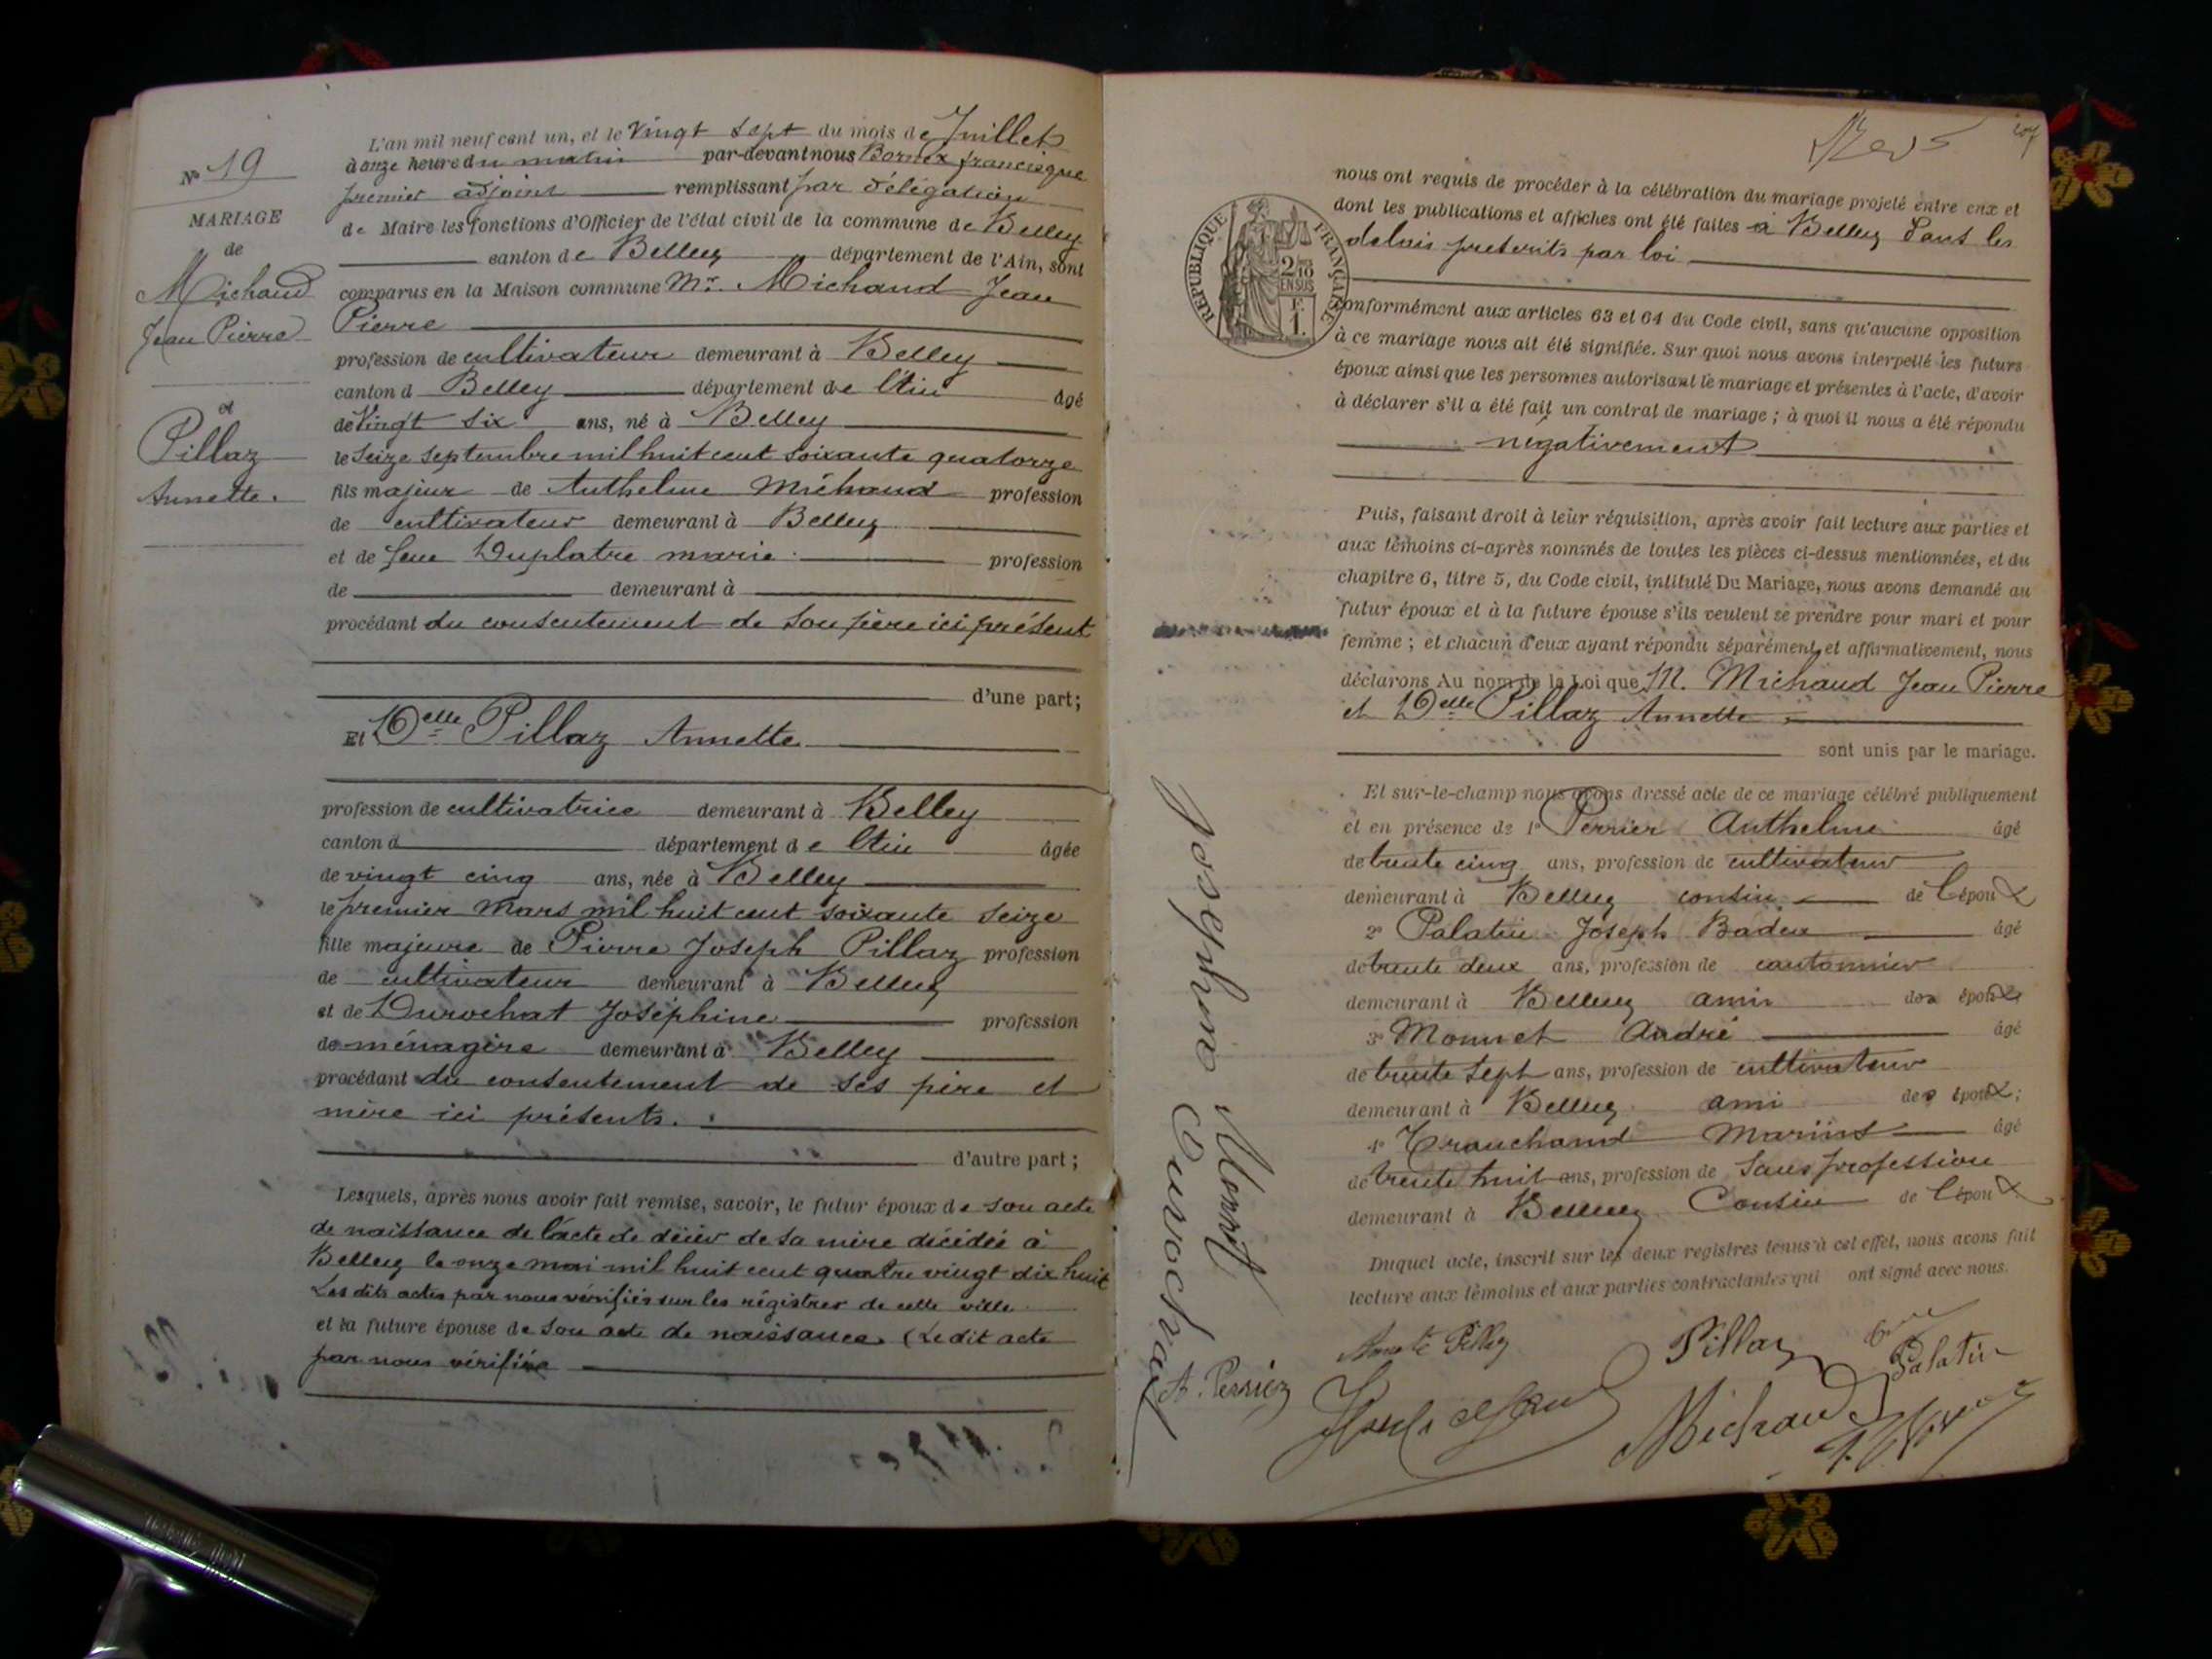 N° 19
MARIAGE
de
Michaud
Jean Pierre
et
Pillaz
Annette.
L'an mil neuf cent un, et le Vingt Sept du mois de Juillet
à onze heure du matin par-devant nous Bornex francisque
premier adjoint remplissant par délégation
de Maire les fonctions d'Officier de l'état civil de la commune de Belley
canton de Belley département de l'Ain, sont
comparus en la Maison commune Mr. Michaud Jean
Pierre
profession de cultivateur demeurant à Belley
canton d Belley département de l'Ain âgé
de Vingt Six ans, né à Belley
le Seize Septembre mil huit cent soixante quatorze
fils majeur de Anthelme Michaud profession
de cultivateur demeurant à Belley
et de feue Duplatre marie profession
de demeurant à
procédant du consentement de Son père ici présent
d'une part;
Et Delle Pillaz Annette
profession de cultivatrice demeurant à Belley
canton d département de l'Ain âgée
de vingt cinq ans, née à Belley
le premier Mars mil huit cent soixante Seize
fille majeure de Pierre Joseph Pillaz profession
de cultivateur demeurant à Belley
et de Durochat Joséphine profession
de ménagère demeurant à Belley
procédant du consentement de ses père et
mère ici présents.
d'autre part;
Lesquels, après nous avoir fait remise, savoir, le futur époux de son acte
de naissance de l'acte de décès de sa mère décédée à
Belley le onze mai mil huit cent quatre vingt dix huit
Les dits actes par nous vérifiés sur les régistres de cette ville
et la future épouse de Son acte de naissance (Le dit acte
par nous vérifiée
nous ont requis de procéder à la célébration du mariage projeté entre eux et
dont les publications et affiches ont été faites à Belley Dans les
delais prescrits par loi
RÉPUBLIQUE FRANÇAISE
2/10 EN SUS
F. 1.
conformément aux articles 63 et 64 du Code civil, sans qu'aucune opposition
à ce mariage nous ait été signifiée. Sur quoi nous avons interpellé les futurs
époux ainsi que les personnes autorisant le mariage et présentes à l'acte, d'avoir
à déclarer s'il a été fait un contrat de mariage; à quoi il nous a été répondu
négativement
Puis, faisant droit à leur réquisition, après avoir fait lecture aux parties et
aux témoins ci-après nommés de toutes les pièces ci-dessus mentionnées, et du
chapitre 6, titre 5, du Code civil, intitulé Du Mariage, nous avons demandé au
futur époux et à la future épouse s'ils veulent se prendre pour mari et pour
femme; et chacun d'eux ayant répondu séparément et affirmativement, nous
déclarons Au nom de la Loi que M. Michaud Jean Pierre
et Delle Pillaz Annette
sont unis par le mariage.
Et sur-le-champ nous avons dressé acte de ce mariage célébré publiquement
et en présence de 1° Perrier Anthelme âgé
de trente cinq ans, profession de cultivateur
demeurant à Belley cousin de l'époux
2° Palatin Joseph Baden âgé
de trente deux ans, profession de cantonnier
demeurant à Belley ami des époux
3° Monnet André âgé
de trente Sept ans, profession de cultivateur
demeurant à Belley ami des époux;
4° Tranchand Marius âgé
de trente huit ans, profession de Sans profession
demeurant à Belley Cousin de l'époux
Duquel acte, inscrit sur les deux registres tenus à cet effet, nous avons fait
lecture aux témoins et aux parties contractantes qui ont signé avec nous.
Josephine Durochat
Monnet
A. Perrier
Annette Pillaz
Pillaz
Palatin
Michaud